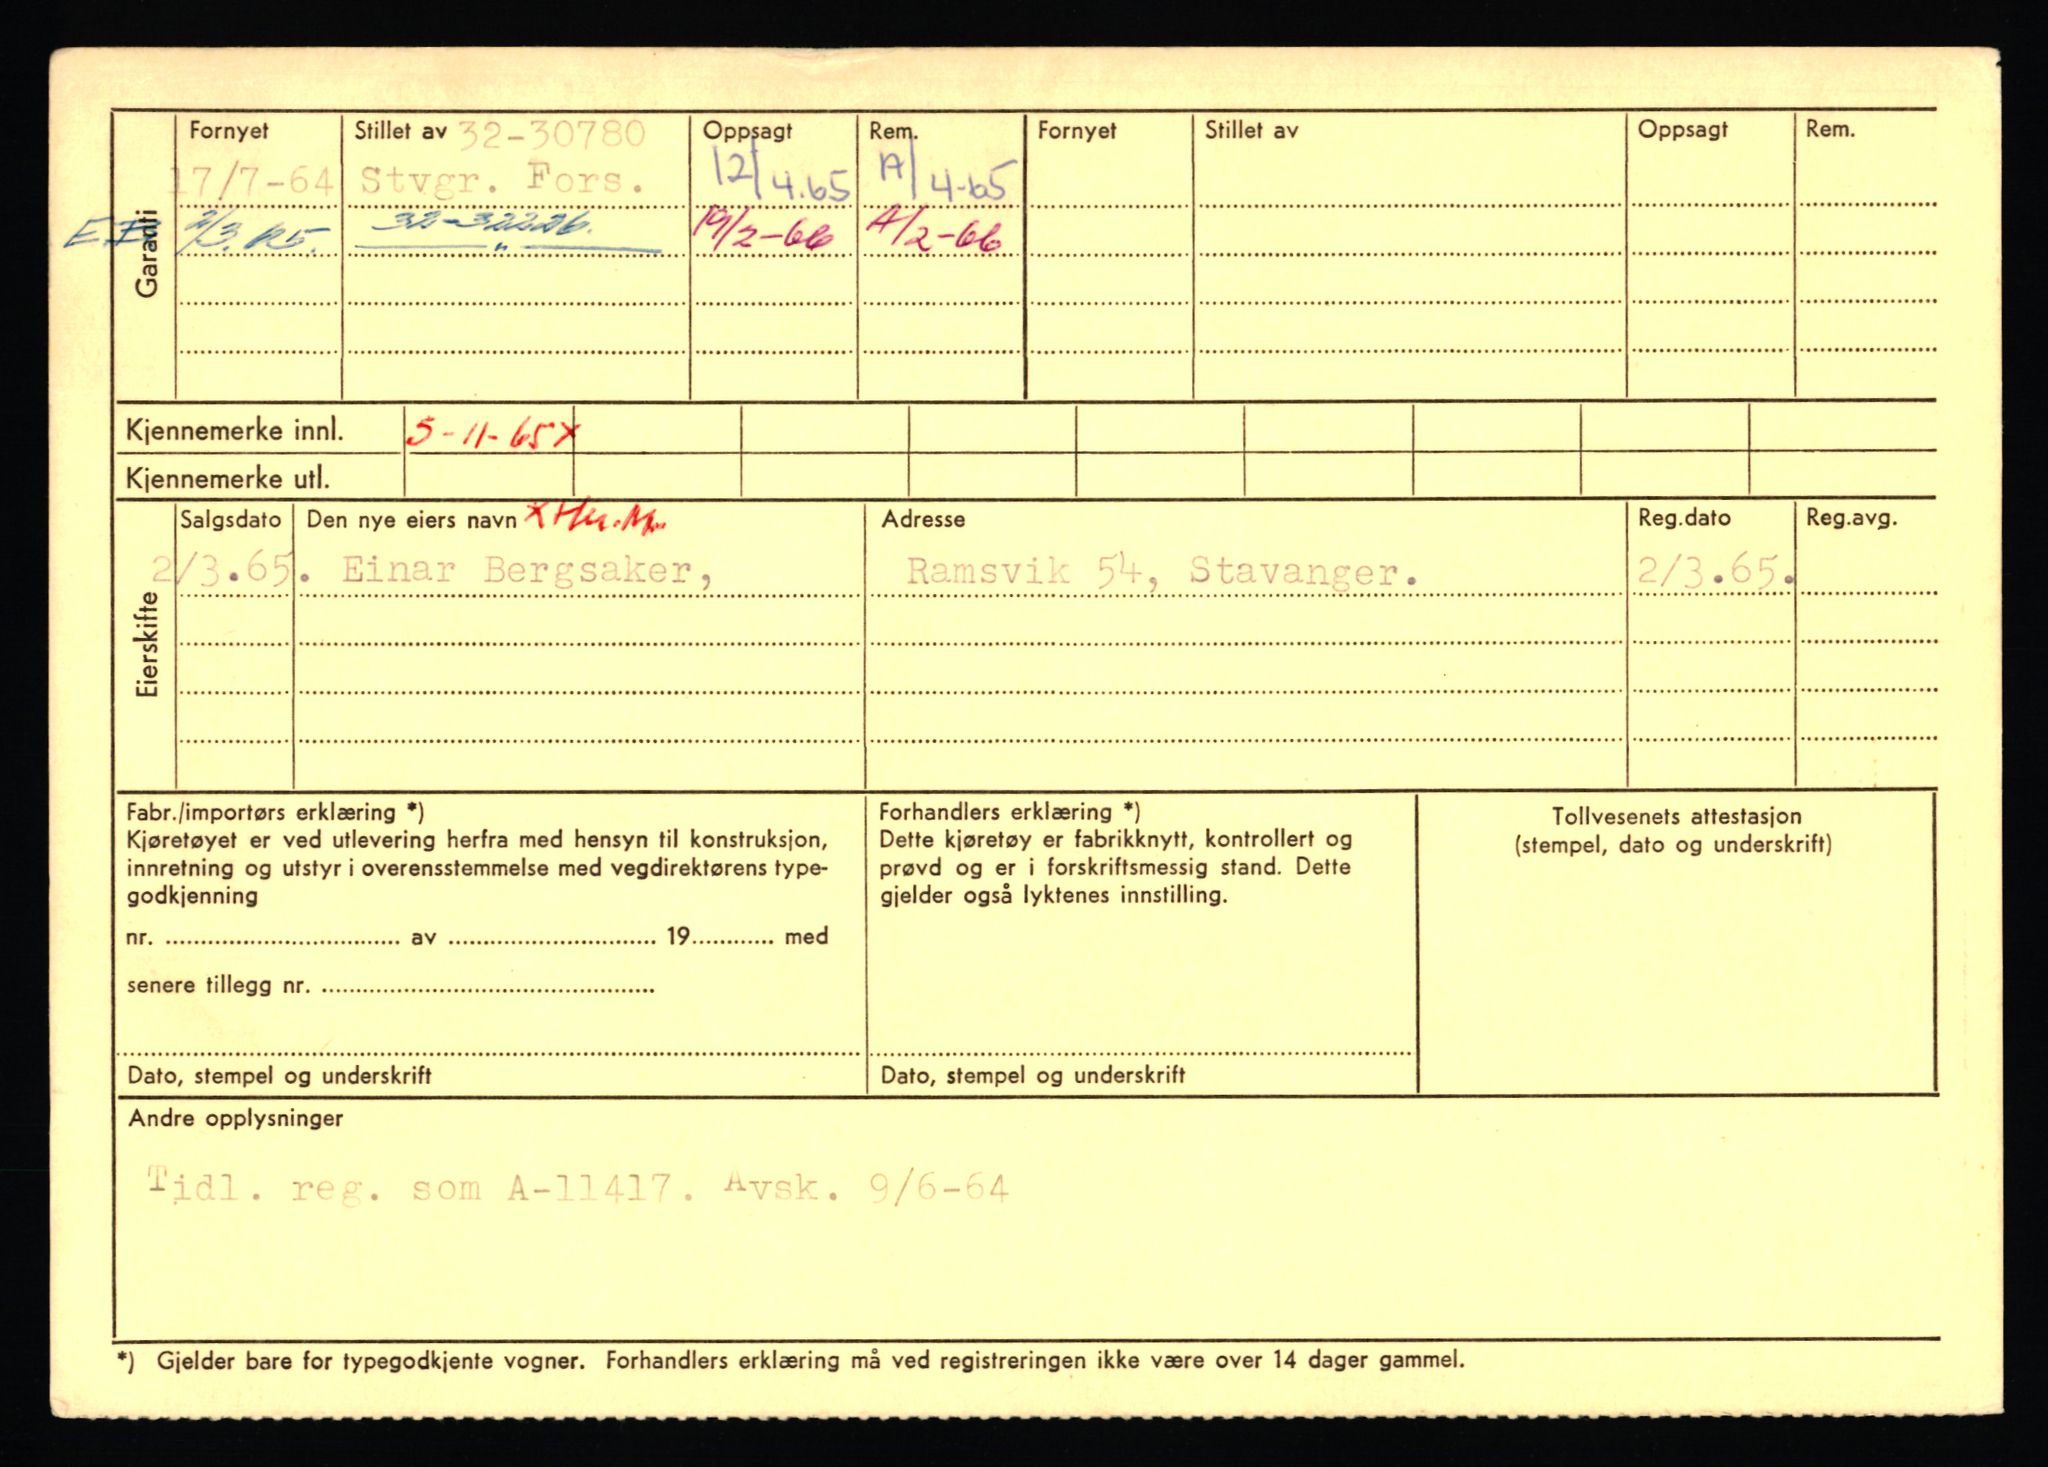 Fornyet Stillet av 32-30780 Oppsagt Rem. Fornyet Stillet av Oppsagt Rem.
17/7-64 Stvgr. Fors. 12/4.65 A/4-65
2/3.65. 32-32226. 19/2-66 A/2-66
" 
Garanti
Kjennemerke innl. 5-11-65 x
Kjennemerke utl.
Salgsdato Den nye eiers navn x Adresse Reg.dato Reg.avg.
2/3.65. Einar Bergsaker, Ramsvik 54, Stavanger. 2/3.65.
Eierskifte
Fabr./importørs erklæring *)
Kjøretøyet er ved utlevering herfra med hensyn til konstruksjon,
innretning og utstyr i overensstemmelse med vegdirektørens type-
godkjenning
nr. ........ av ........ 19........ med
senere tillegg nr. ........
Dato, stempel og underskrift
Forhandlers erklæring *)
Dette kjøretøy er fabrikknytt, kontrollert og
prøvd og er i forskriftsmessig stand. Dette
gjelder også lyktenes innstilling.
Dato, stempel og underskrift
Tollvesenets attestasjon
(stempel, dato og underskrift)
Andre opplysninger
Tidl. reg. som A-11417. Avsk. 9/6-64
*) Gjelder bare for typegodkjente vogner. Forhandlers erklæring må ved registreringen ikke være over 14 dager gammel.